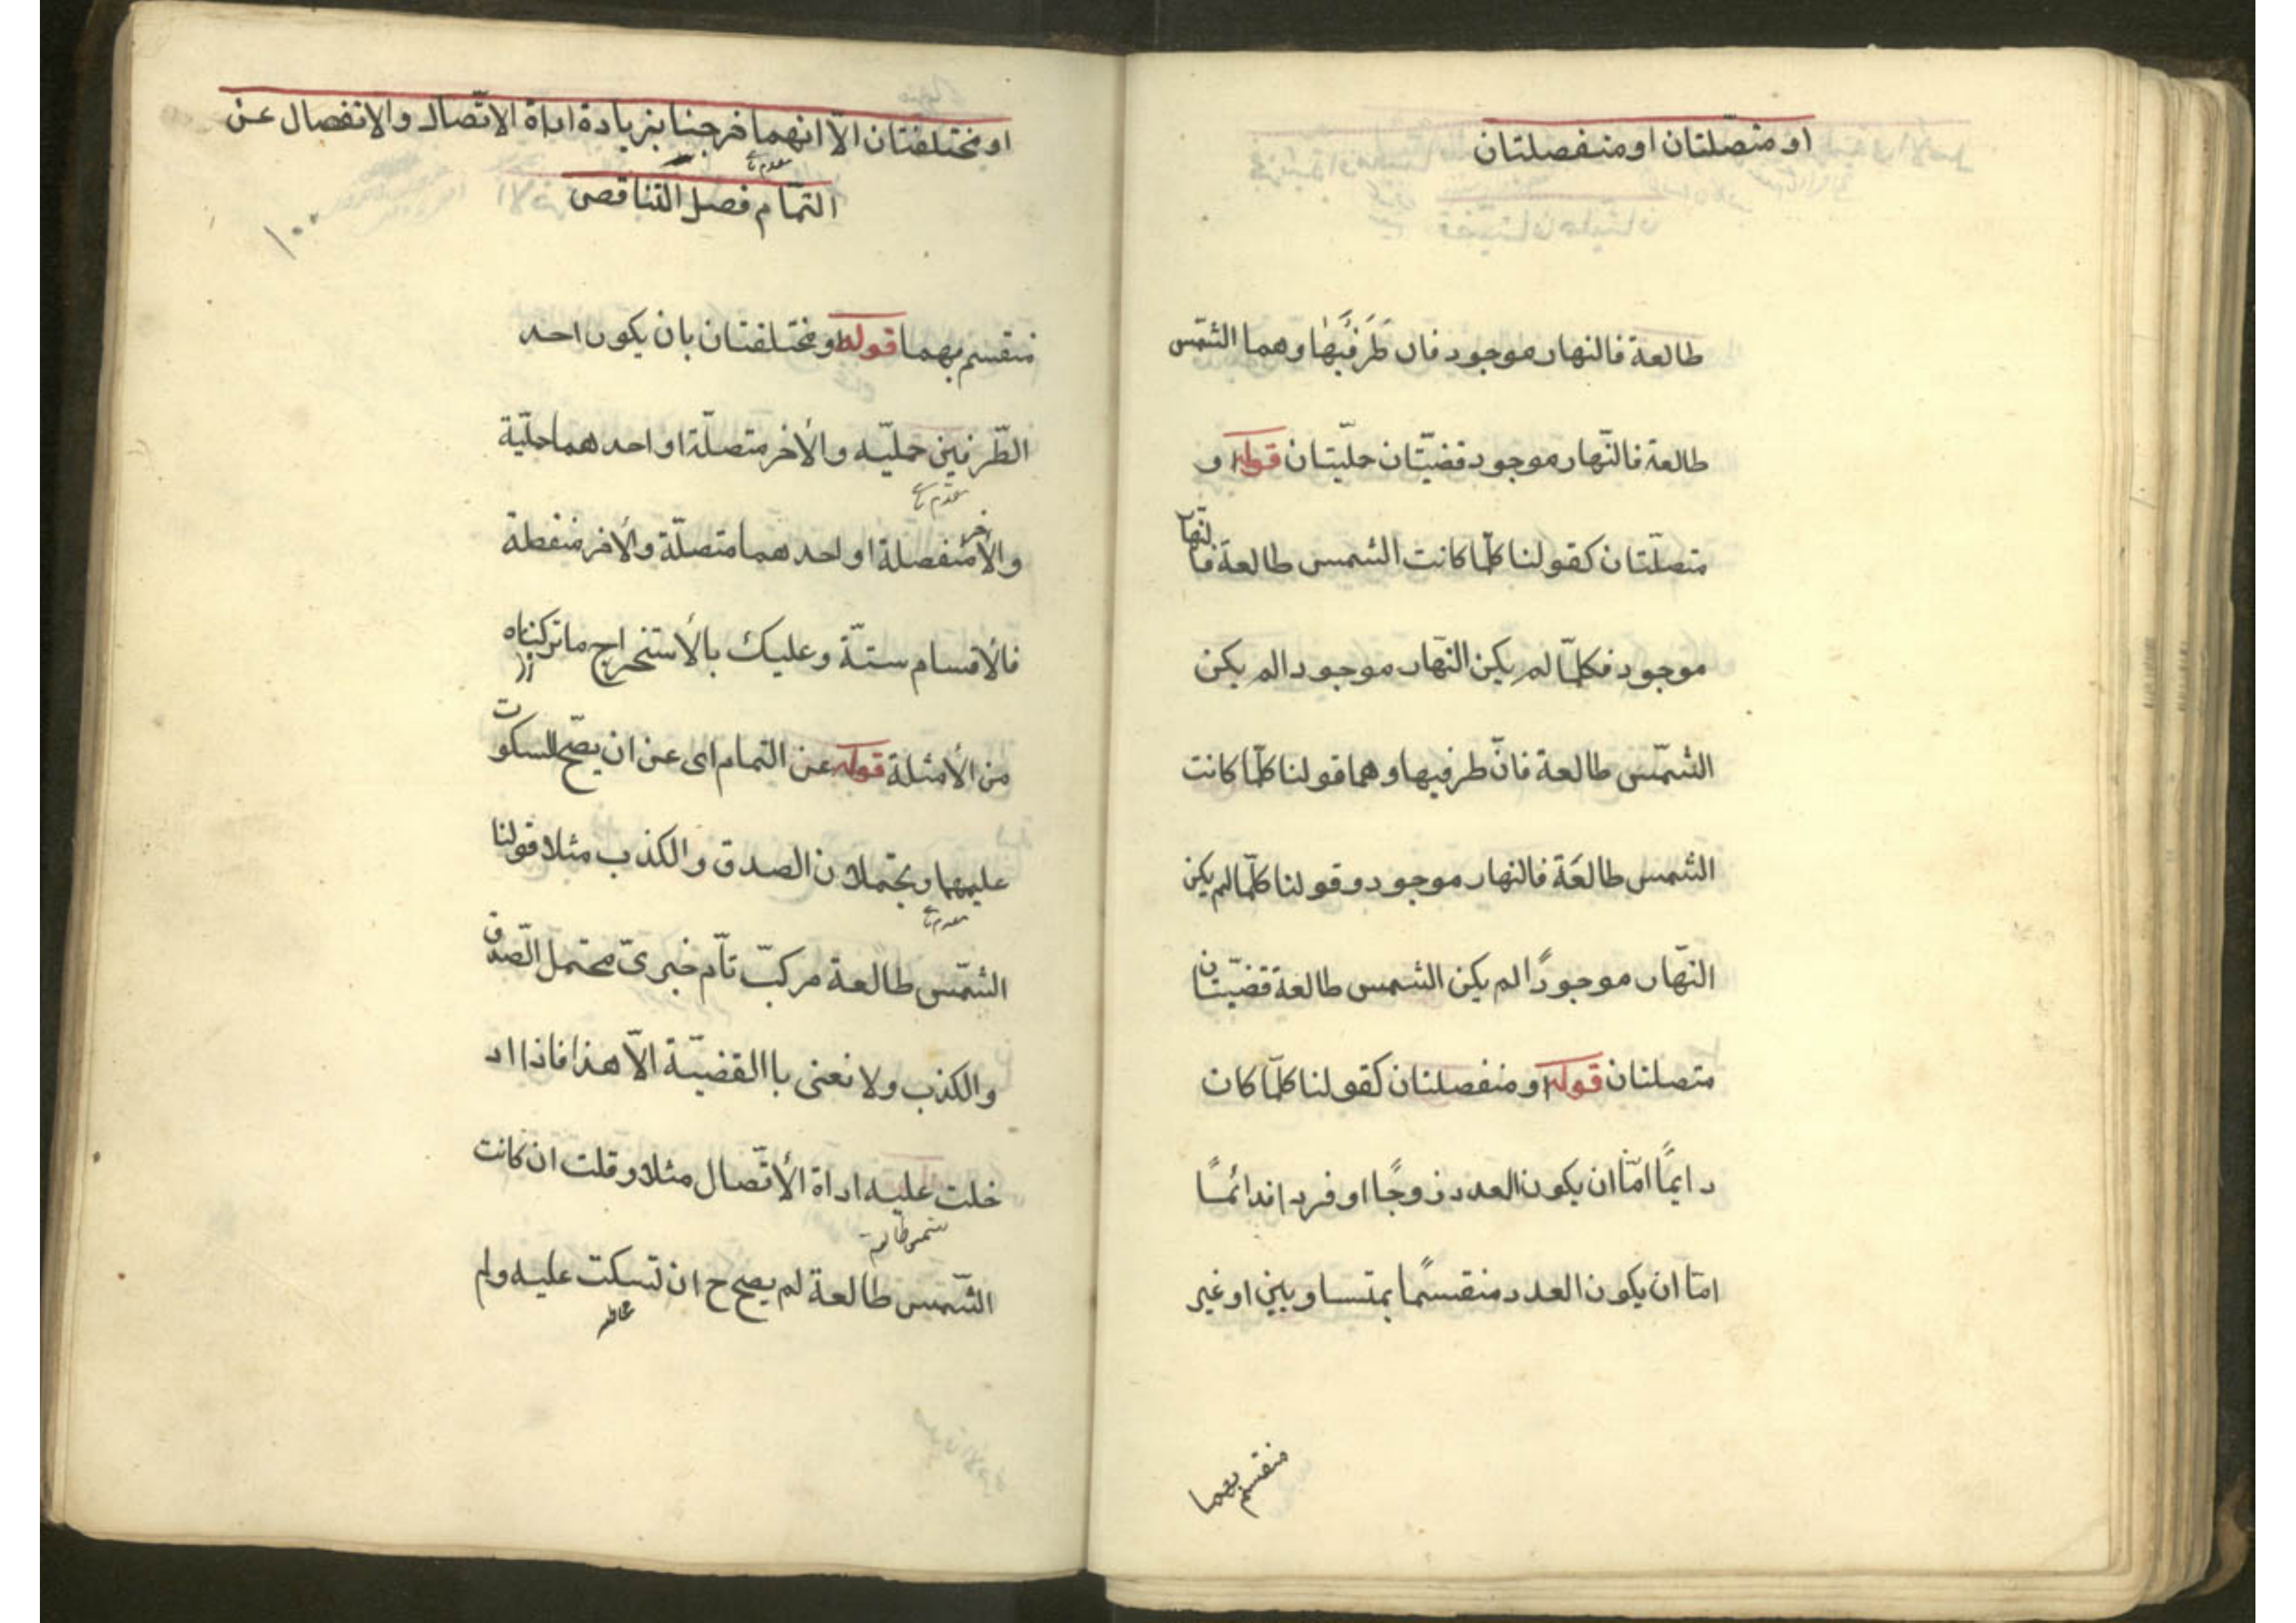 او متصلتان او منفصلتان
طالعة فالنهار موجود فان طَرَفَيْها وهما الشّمس
طالعة فالنّهار موجود قضيّتان حمليّتان قوله او
متصلّتان كقولنا كلّما كانت الشمس طالعة فالنّهار
موجود فكلّما لم يكن النّهار موجودا لم يكن
الشّمس طالعة فانّ طرفيها وهما قولنا كلّما كانت
الشمس طالعَة فالنهار موجود وقولنا كلّما لم يكن
النّهار موجودًا لم يكن الشمس طالعة قضيّتان
متصلتان قوله او منفصلتان كقولنا كلّما كان
دايمًا امّا ان يكون العدد زوجًا او فردا فدائمًا
امّا ان يكون العدد منقسمًا بمتساويين او غير
منقسم بهما
او مختلفتان الاّ انهما خرجتا بزيادة اداة الاتّصال والانفصال عن
التمّام فصل التناقص
١٠٠
منقسم بهما قوله او مختلفتان بان يكون احد
الطّرفين حمليّه والأخر متصلّة او احدهما حمليّة
والأخر منفصلة او احدهما متصلّة والأخر منفصلة
فالأقسام ستّة وعليك بالأستخراج ما تركناه
من الأمثلة قوله عن التمام اى عن ان يصّح السكوت
عليهما ويحتملان الصدق والكذب مثلا قولنا
الشّمس طالعة مركبّ تاّم خبرىّ محتمل الصّدق
والكذب ولا نعنى باالقضيّة الاّ هذا فاذا اد
خلت عليه اداة الأتّصال مثلا وقلت ان كانت
شمس طالعة
الشّمس طالعة لم يصح ح ان تسكت عليه ولم